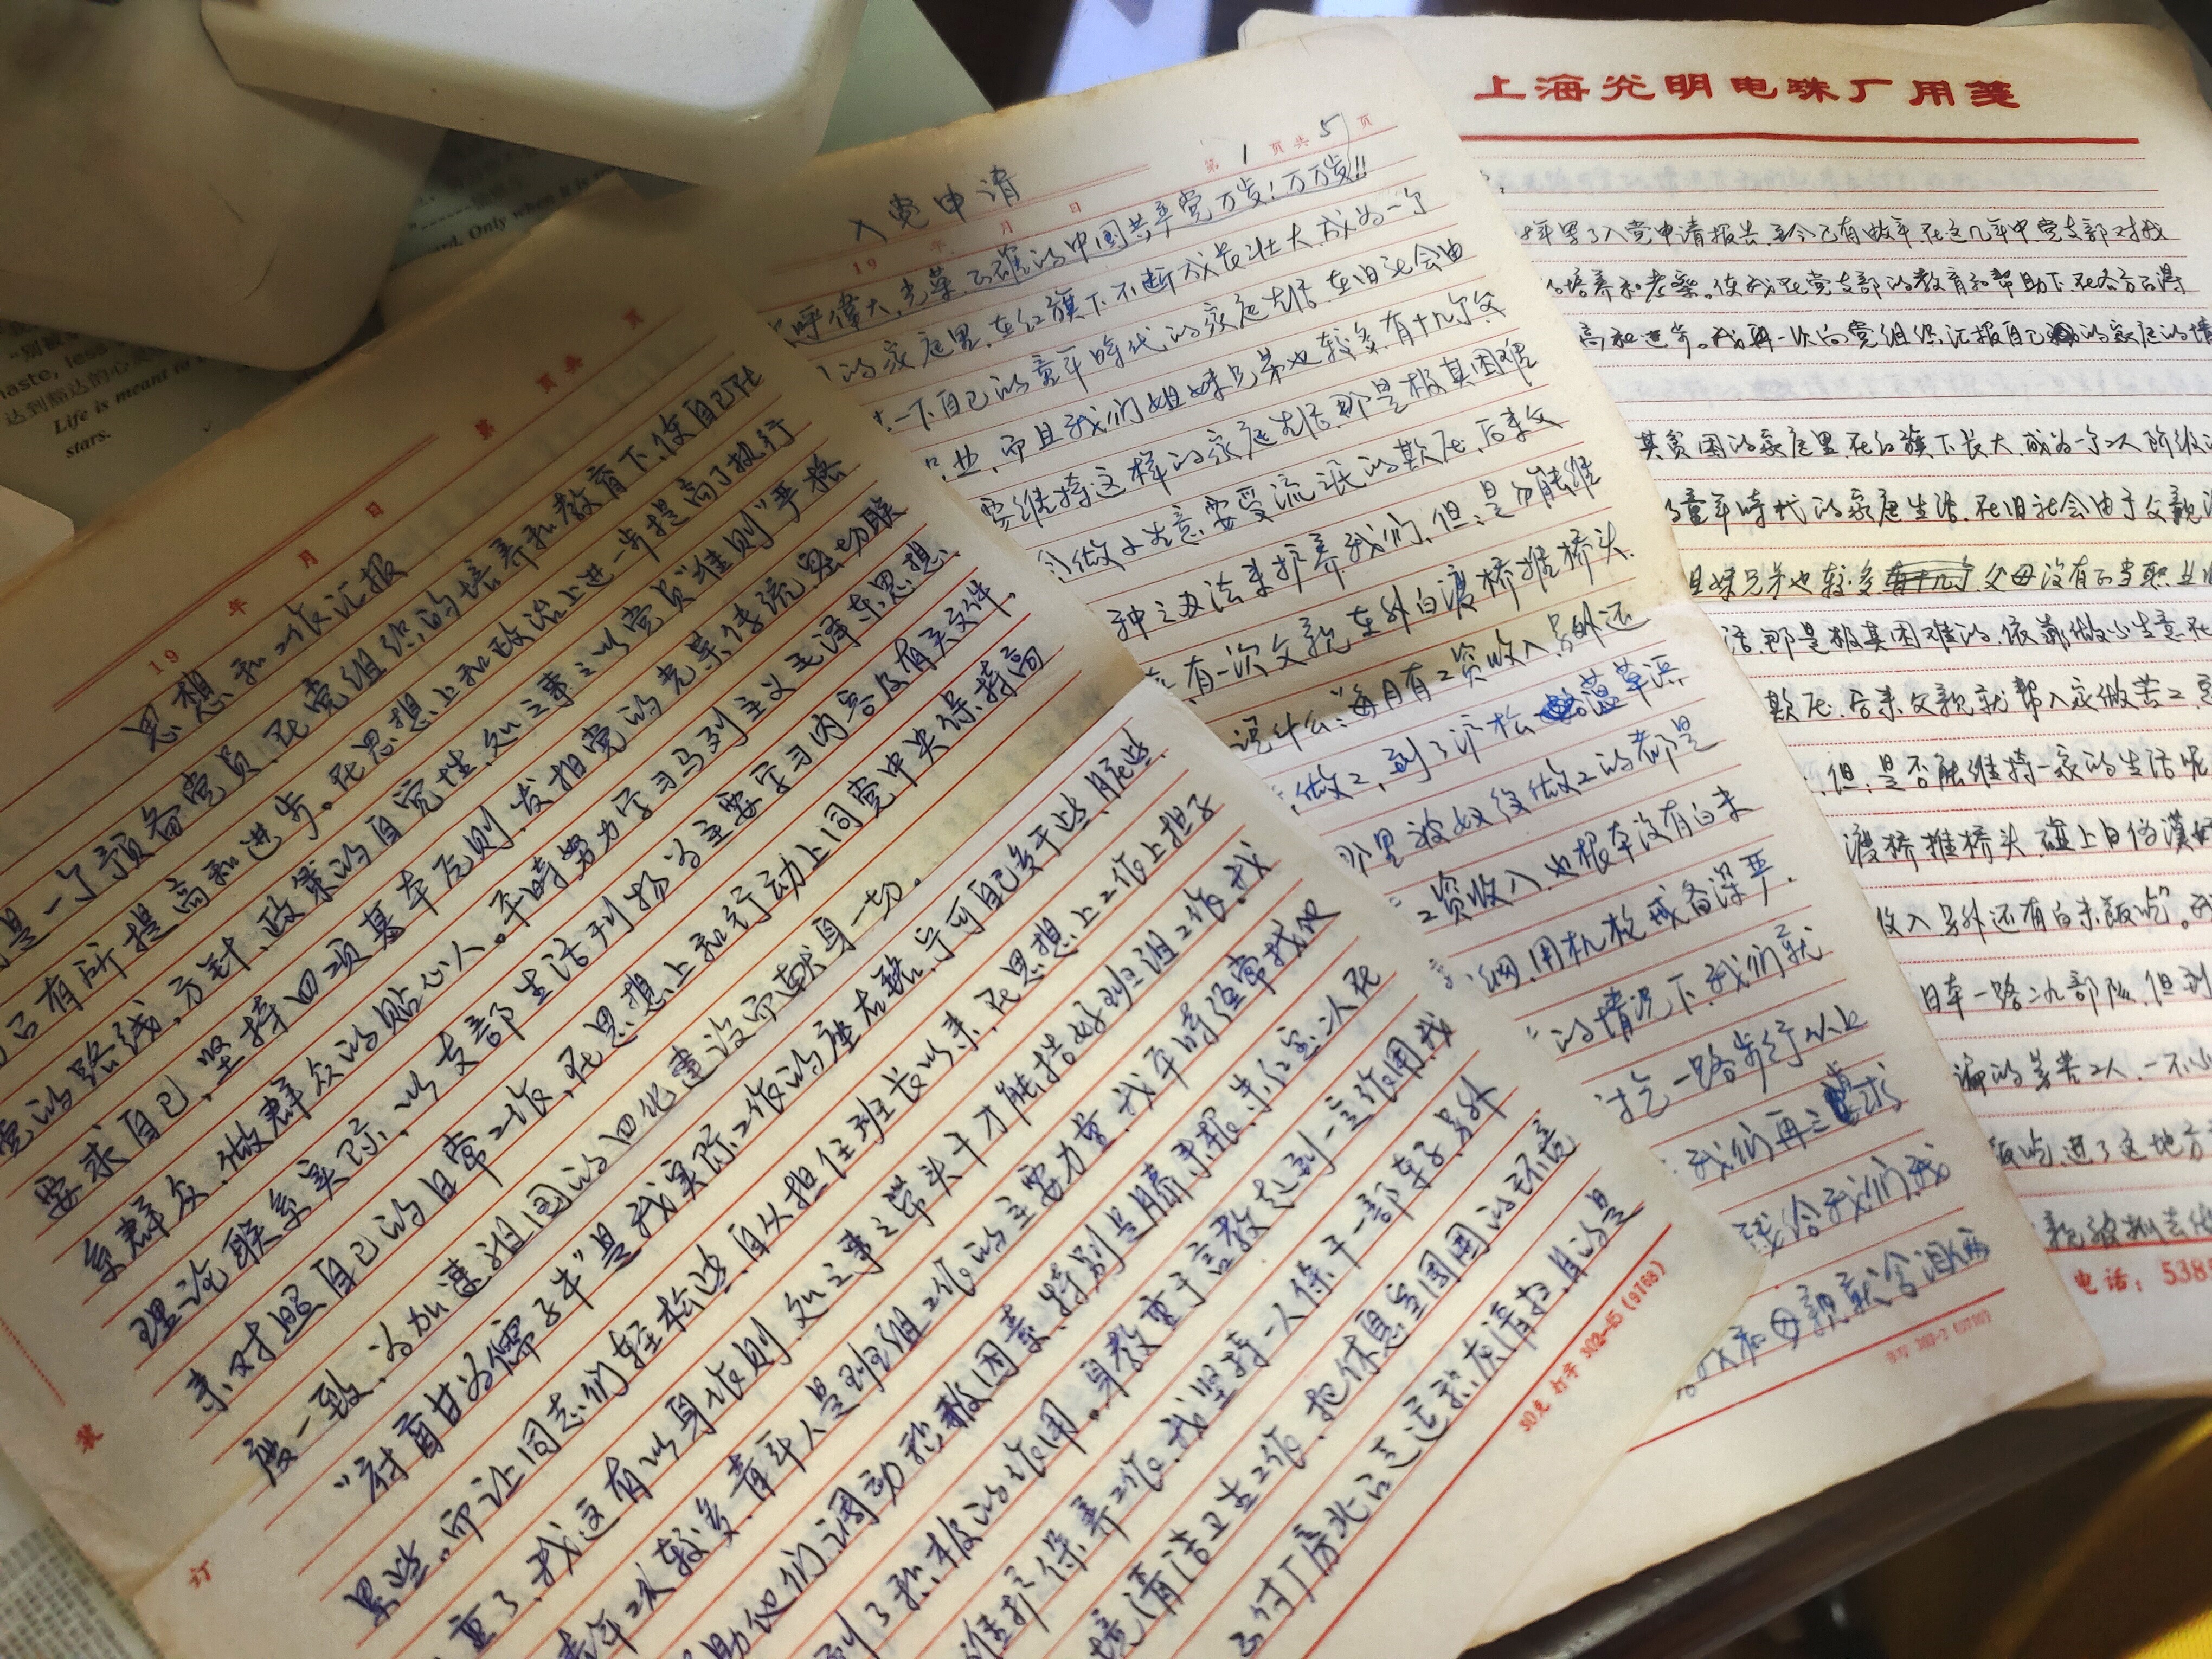 思想和工作汇报
19 年 月 日 第 页 共 页
是一个预备党员,在党组织的培养和教育下,使自己在
有所提高和进步。在思想上和政治上进一步提高了执行
党的路线,方针,政策的自觉性,处处事事以党员“准则”严格
要求自己,坚持四项基本原则,发扬党的光荣传统,密切联
系群众,做群众的贴心人。平時努力学习马列主义毛泽东思想,
理论联系实际,以支部生活刊物为主要学习内容及有关文件,
来对照自己的日常工作,在思想上和行动上同党中央保持高
度一致,为加速祖国的四化建设而献身一切。
“俯首甘为孺子牛”是我实际工作的座右銘,宁可自己多干些,脏些,
累些,而让同志们轻松些,自从担任班长以来,在思想上工作上担子
重了,我这有以身作则,处处事事带头干才能搞好班组工作,我
青年工人较多,青年人是班组工作的主要力量,我平時经常找他
帮助他们调动积极因素,特别是
到了积极的作用。身教重于言教,起到一定作用,我
维护保养工作,我坚持一人保干一部车子,另外
境清洁卫生工作,把休息室周围的环境
厂房北
装
订
30克 打字 302-65 (9768)
入党申请
19 年 月 日 第 1 页 共 5 页
呼偉大,光荣,正確的中国共产党万岁!万万岁!!
的家庭里,在红旗下不断成长壮大,成为一个
一下自己的童年時代的家庭生活,在旧社会由
业,而且我们姐妹兄弟也较多,有十几个,父
要维持这样的家庭生活,那是极其困难
做小生意,要受流氓的欺压,后来父
种种办法来护养我们,但是勿能维
有一次父親在外白渡桥推桥头,
说什么:“每月有工资收入,另外还
做工,到了许松 蕰草浜
那里被奴役做工的都是
工资收入,也根本没有白米
网,用机枪戒备深严,
的情况下,我们就
讨吃一路步行从上
我们再三 求
残给我们,我
和母親就含泪
上海光明电珠厂用笺
年写了入党申请报告,至今已有数年,在这几年中,党支部对我
的培养和考察。使我在党支部的教育和帮助下,在各方面得
高和进步。我再一次向党组织汇报自己的家庭的情
其贫困的家庭里,在红旗下长大,成为一个工人阶级
的童年時代的家庭生活,在旧社会由于父親
姐妹兄弟也较多有十几个父母没有正当职业
活,那是极其困难的,依靠做小生意,
欺压,后来父親就帮人家做苦工,
但是否能维持一家的生活呢
渡桥推桥头,碰上日伪漢奸
收入,另外还有白米飯吃”。
日本一路二九部队,但到
的劳苦工人,一不小
饭吃,进了这地方
親被抓去
电话:538